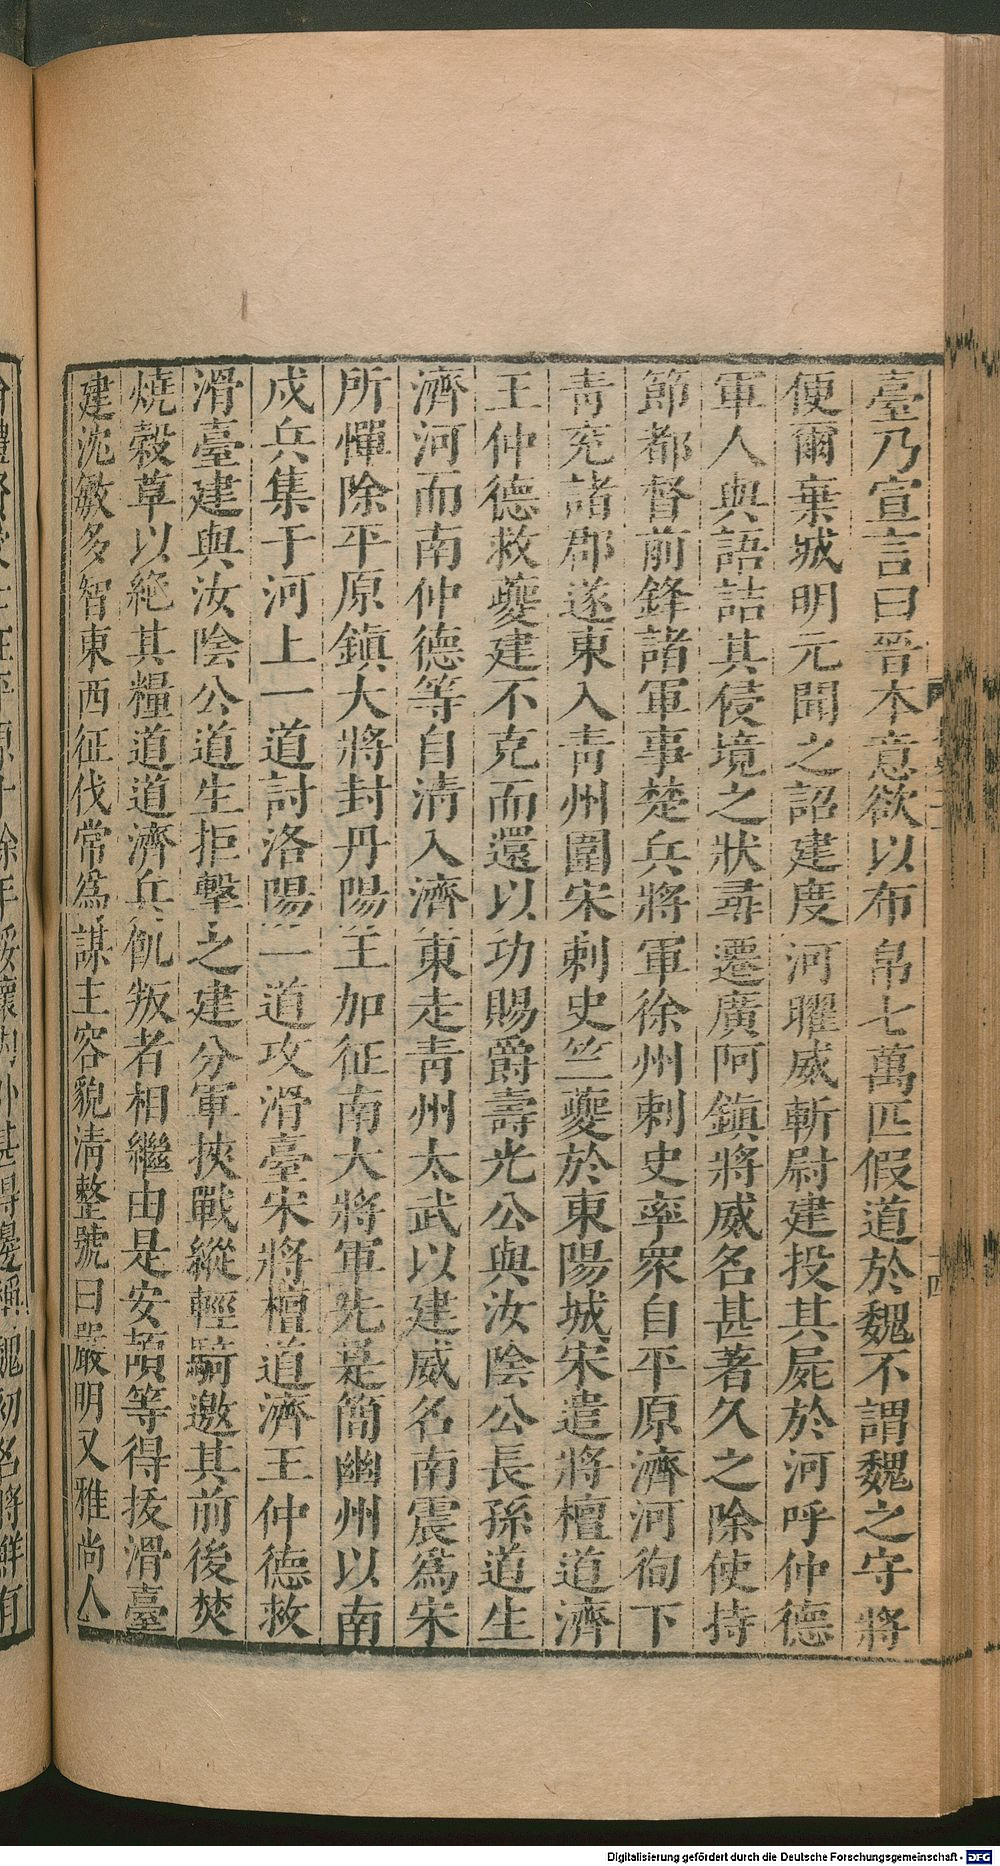 臺乃宣言曰晉本意欲以布帛七萬匹假道於魏不謂魏之守將
便爾棄城明元聞之詔建度河曜威斬尉建投其屍於河呼仲德
軍人與語詰其侵境之狀尋遷廣阿鎮將威名甚著久之除使持
節都督前鋒諸軍事楚兵將軍徐州刺史率眾自平原濟河徇下
青兗諸郡遂東入青州圍宋刺史竺夔於東陽城宋遣將檀道濟
王仲德救夔建不克而還以功賜爵壽光公與汝陰公長孫道生
濟河而南仲德等自清入濟東走青州太武以建威名南震為宋
所憚除平原鎮大將封丹陽王加征南大將軍先是簡幽州以南
戍兵集于河上一道討洛陽一道攻滑臺宋將檀道濟王仲德救
滑臺建與汝陰公道生拒擊之建分軍挾戰縱輕騎邀其前後焚
燒穀草以絕其糧道道濟兵飢叛者相繼由是安頡等得拔滑臺
建沈敏多智東西征伐常為謀主容貌清整號曰嚴明又雅尚人
Digitalisierung gefördert durch die Deutsche Forschungsgemeinschaft - DFG